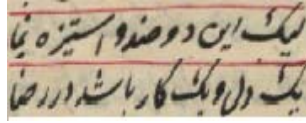 لیک این دو ضد و استیزه نما
یک دل و یک کار باشد در رضا